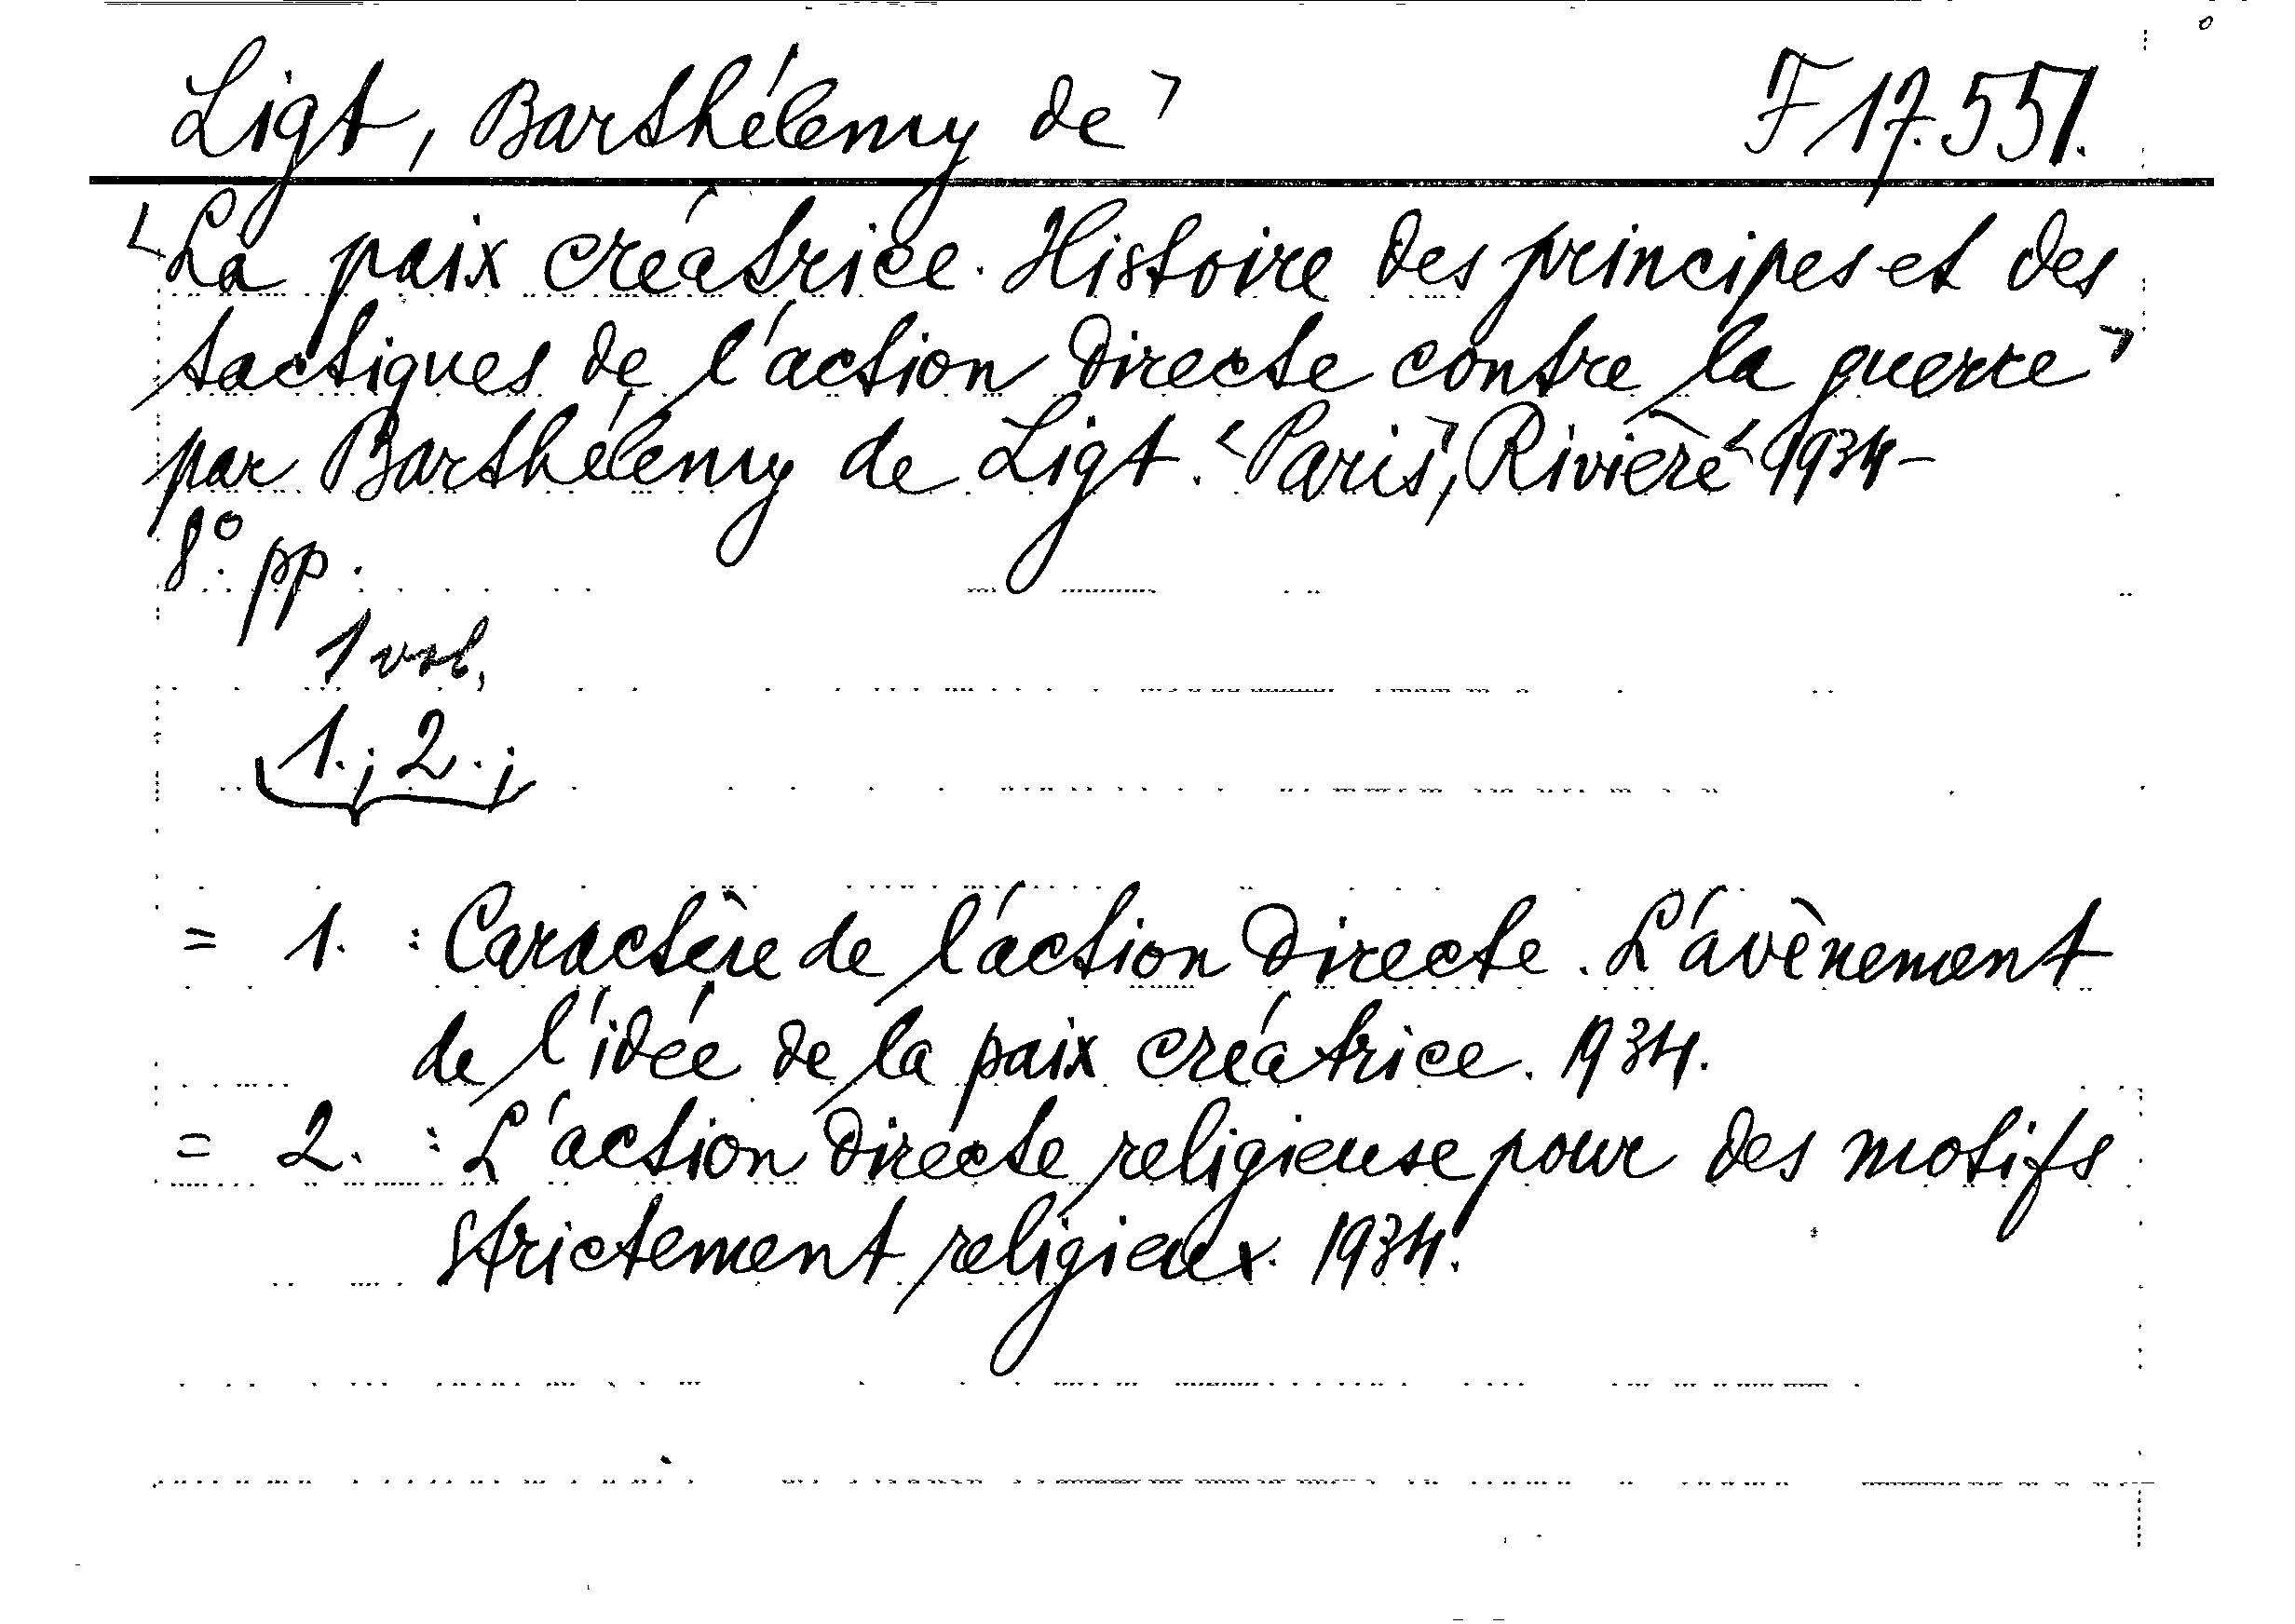 Ligt, Barthélemy de F 17.551.
La paix créatrice. Histoire des principes et des
tactiques de l'action directe contre la guerre
par Barthélemy de Ligt. Paris, Rivière 1934-
8°. pp.
1 vol.
1.; 2.;
= 1. : Caractère de l'action directe. L'avènement
de l'idée de la paix créatrice. 1934.
= 2. : L'action directe religieuse pour des motifs
strictement religieux. 1934.